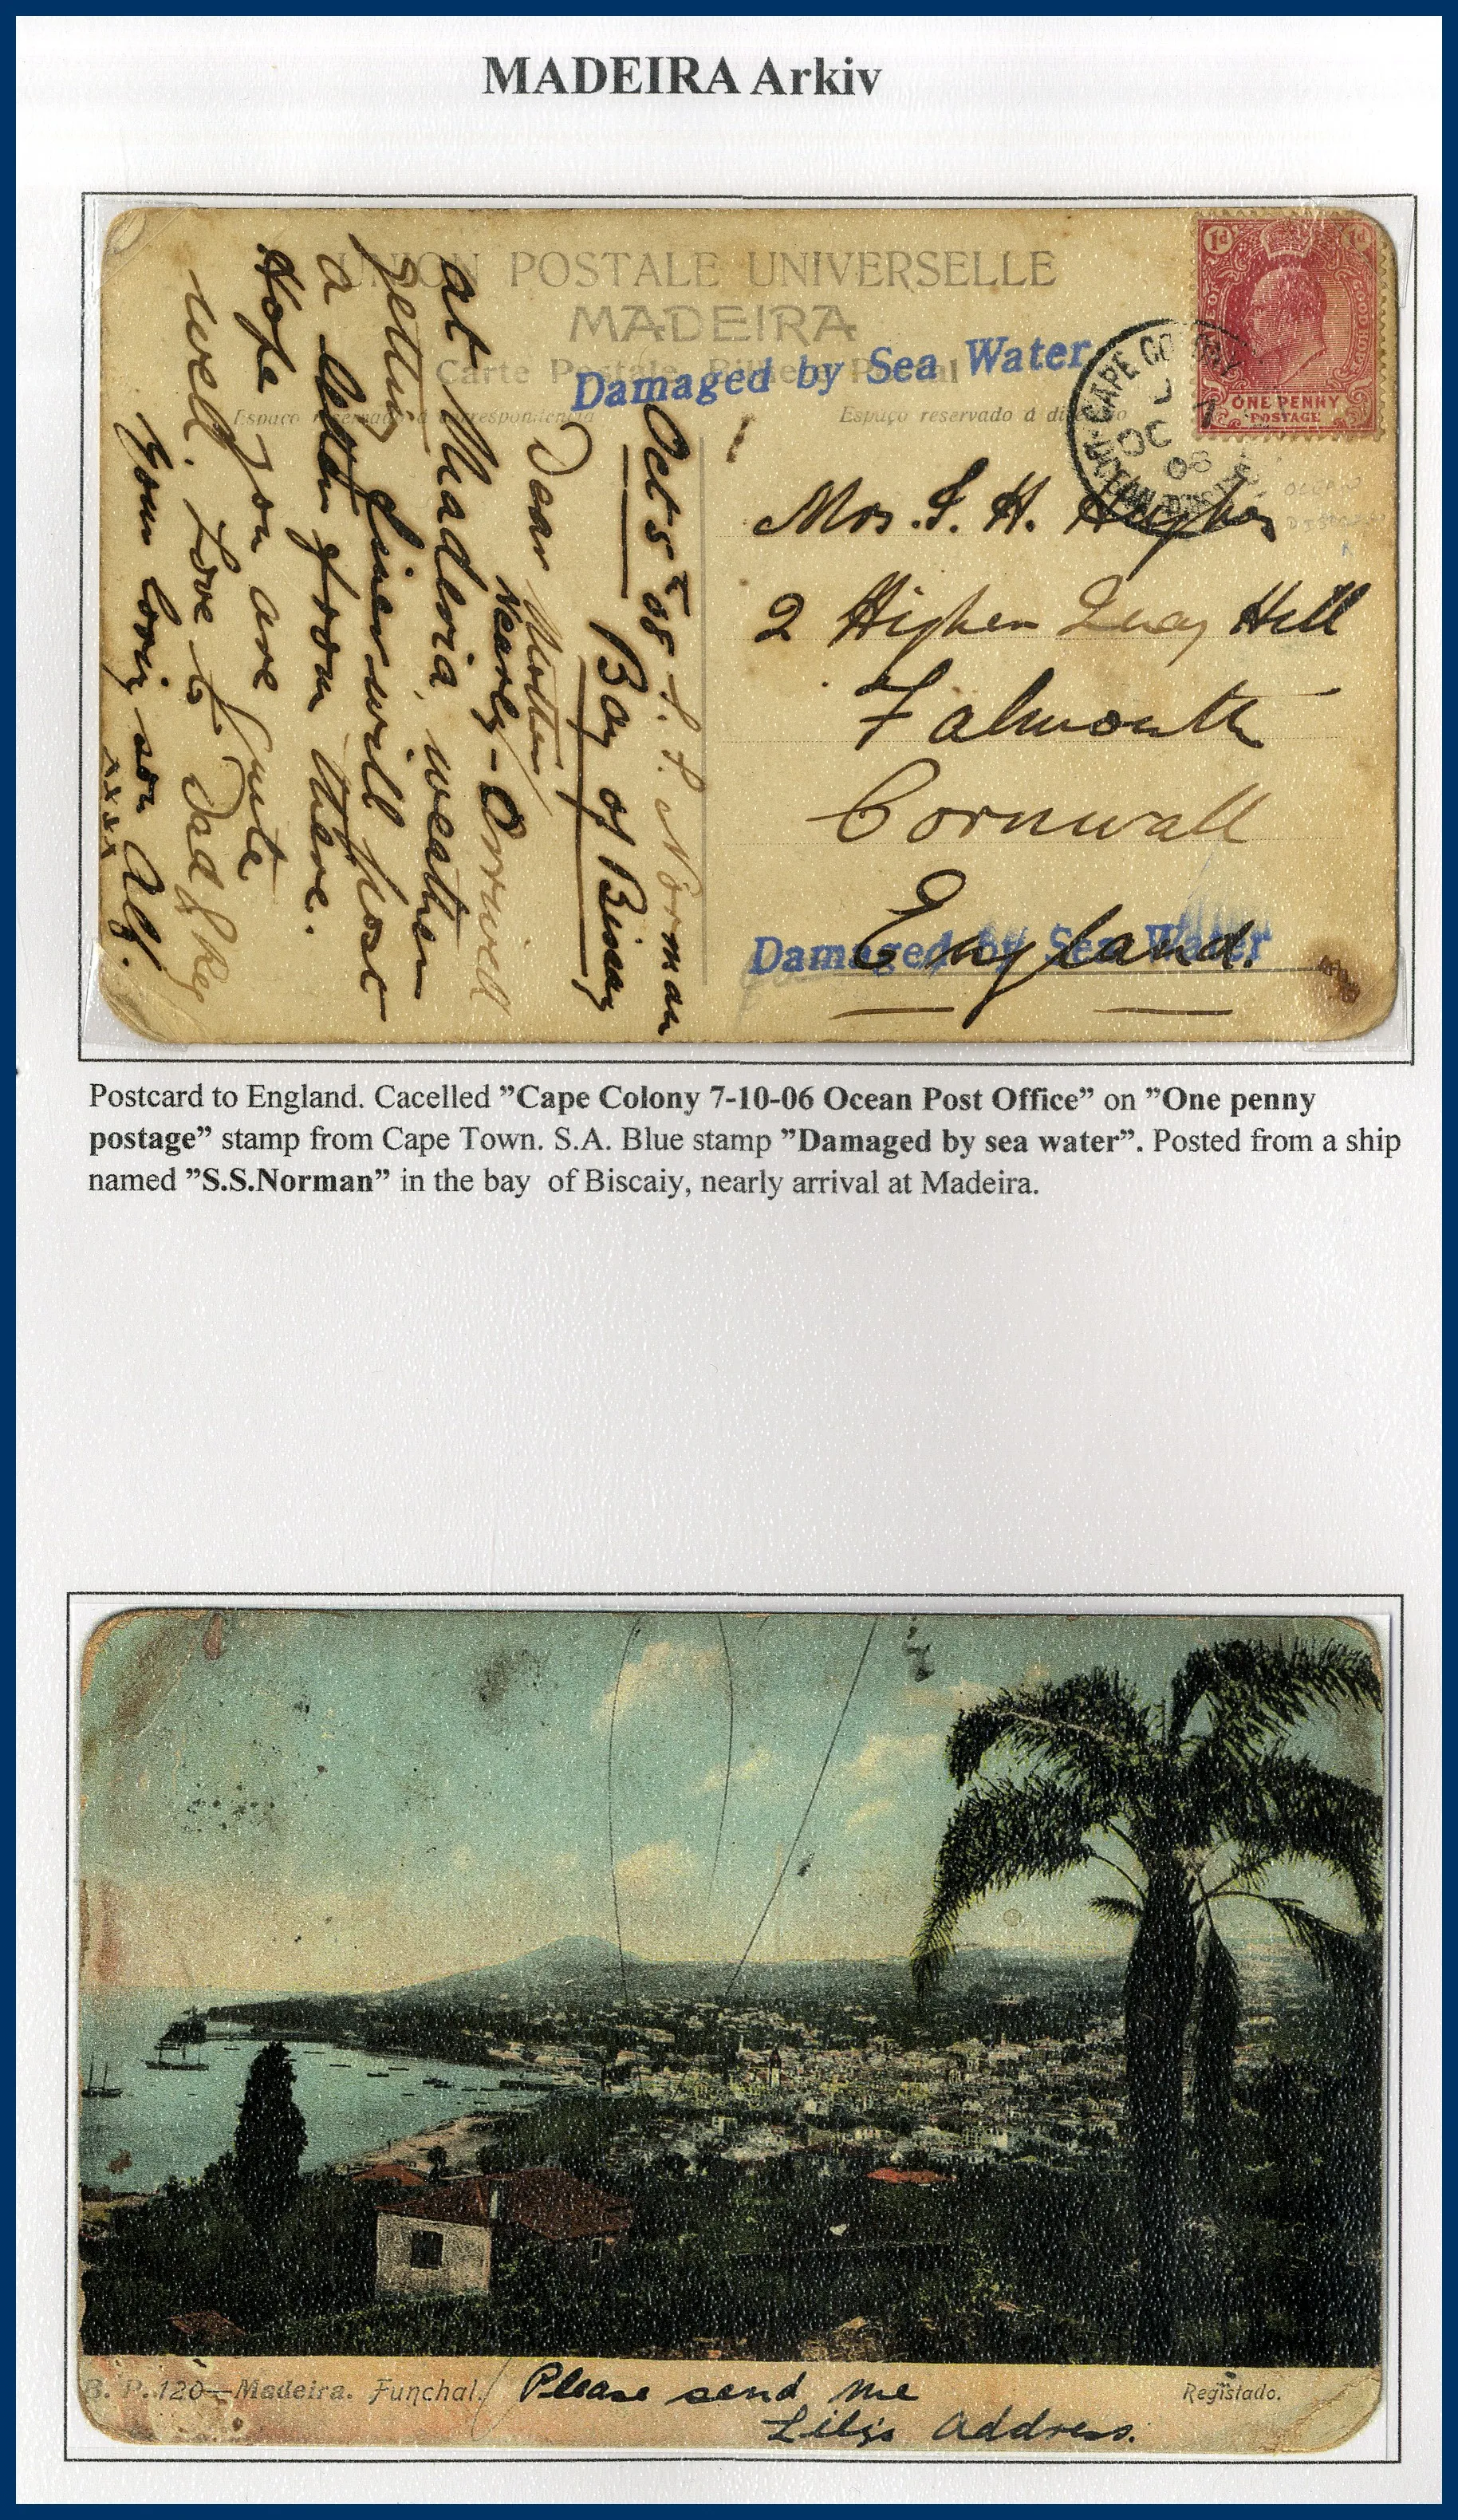 MADEIRA Arkiv
UNION POSTALE UNIVERSELLE
MADEIRA
Carte Postale Bilhete Postal
Damaged by Sea Water
Espaço reservado á correspondencia
Espaço reservado á
1d 1d
OF GOOD HOPE
ONE PENNY
POSTAGE
CAPE COLONY
OC 7
Oct 5th S. S. Norman
Bay of Biscay
Dear Mother
Nearly
at Madeira, weather
getting finer will post
a letter from there.
Hope you are quite
well. Love to Dad &
Your loving son Alf.
xxxx
Mrs. S. H. Hughes
2 Higher Quay Hill
Falmouth
Cornwall
England.
Damaged by Sea Water
OCEAN
Postcard to England. Cacelled ”Cape Colony 7-10-06 Ocean Post Office” on ”One penny
postage” stamp from Cape Town. S.A. Blue stamp ”Damaged by sea water”. Posted from a ship
named ”S.S.Norman” in the bay of Biscaiy, nearly arrival at Madeira.
B. P. 120—Madeira. Funchal.
Please send me
Lily's address.
Registado.